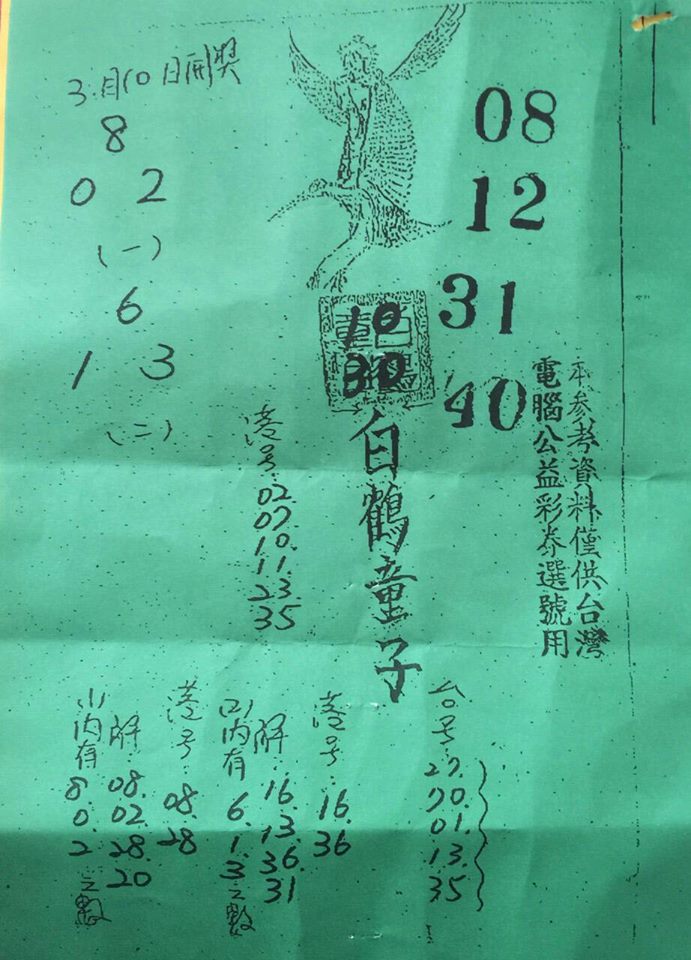 3月10日開獎
8
0 2
(一)
6
1 3
(二)
08
12
31
40
10
30
白鶴童子
本參考資料僅供台灣
電腦公益彩券選號用
港号:
02.
07.
10.
11.
23.
35
台号:
27.
70.
01.
13.
35
港号:
16.
36
(二)內有
6.
1.
3之數
解:
16.
13.
36.
31
港号:
08.
28
(一)內有
8.
0.
2之數
解:
08.
02.
28.
20